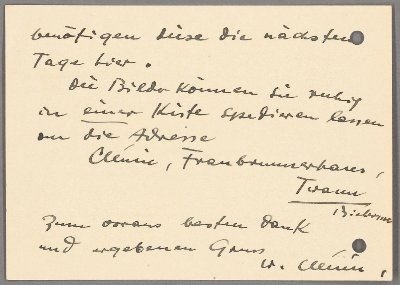 benötigen diese die nächsten
Tage hier.
Die Bilder können Sie ruhig
in einer Kiste spedieren lassen
an die Adresse
Clénin, Fraubrunnenhaus,
Twann
Bielersee
Zum voraus besten Dank
und ergebenen Gruss
W. Clénin,